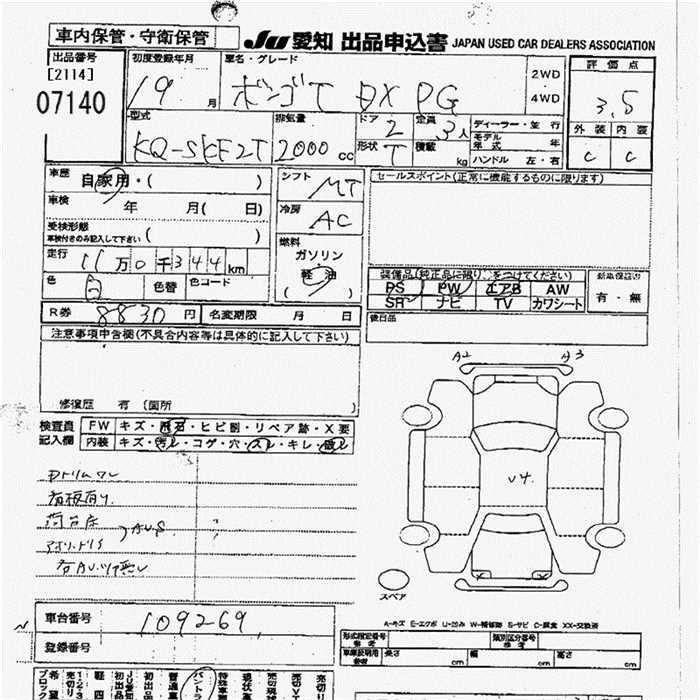 車内保管・守衛保管
JU 愛知 出品申込書 JAPAN USED CAR DEALERS ASSOCIATION
出品番号
[2114]
07140
初度登録年月
19 月
車名・グレード
ボンゴT DX PG
2WD
4WD
評価点
3.5
外装 内装
C C
型式
KQ-SKF2T
排気量
2000 cc
ドア
2
定員
3人
形状
T
積載
kg
ディーラー・並行
モデル年式 年
ハンドル 左・右
車歴
自家用・( )
車検
年 月( 日)
受検形態
車検付きのみ記入して下さい ( )
走行
11万0千344km
色
白
色替
色コード
シフト
MT
冷房
AC
燃料
ガソリン
軽油
セールスポイント(正常に機能するものに限ります)
装備品(純正品に限り○をつけてください)
PS PW エアB AW
SR ナビ TV カワシート
新車保証書
有・無
後日品
R券
8830円
名変期限 月 日
注意事項申告欄(不具合内容等は具体的に記入して下さい)
修復歴 有 (箇所
検査員記入欄
FW キズ・飛石・ヒビ割・リペア跡・X要
内装 キズ・汚レ・コゲ・穴・スレ・キレ・破レ
看板有り
荷台床
AUS
A2
A3
U4
スペア
A-キズ E-エクボ U-凹み W-補修跡 S-サビ C-腐食 XX-交換済
車台番号
109269
登録番号
型式指定番号
参考
類別区分番号
参考
車庫証明用参考
長さ cm
幅 cm
高さ cm